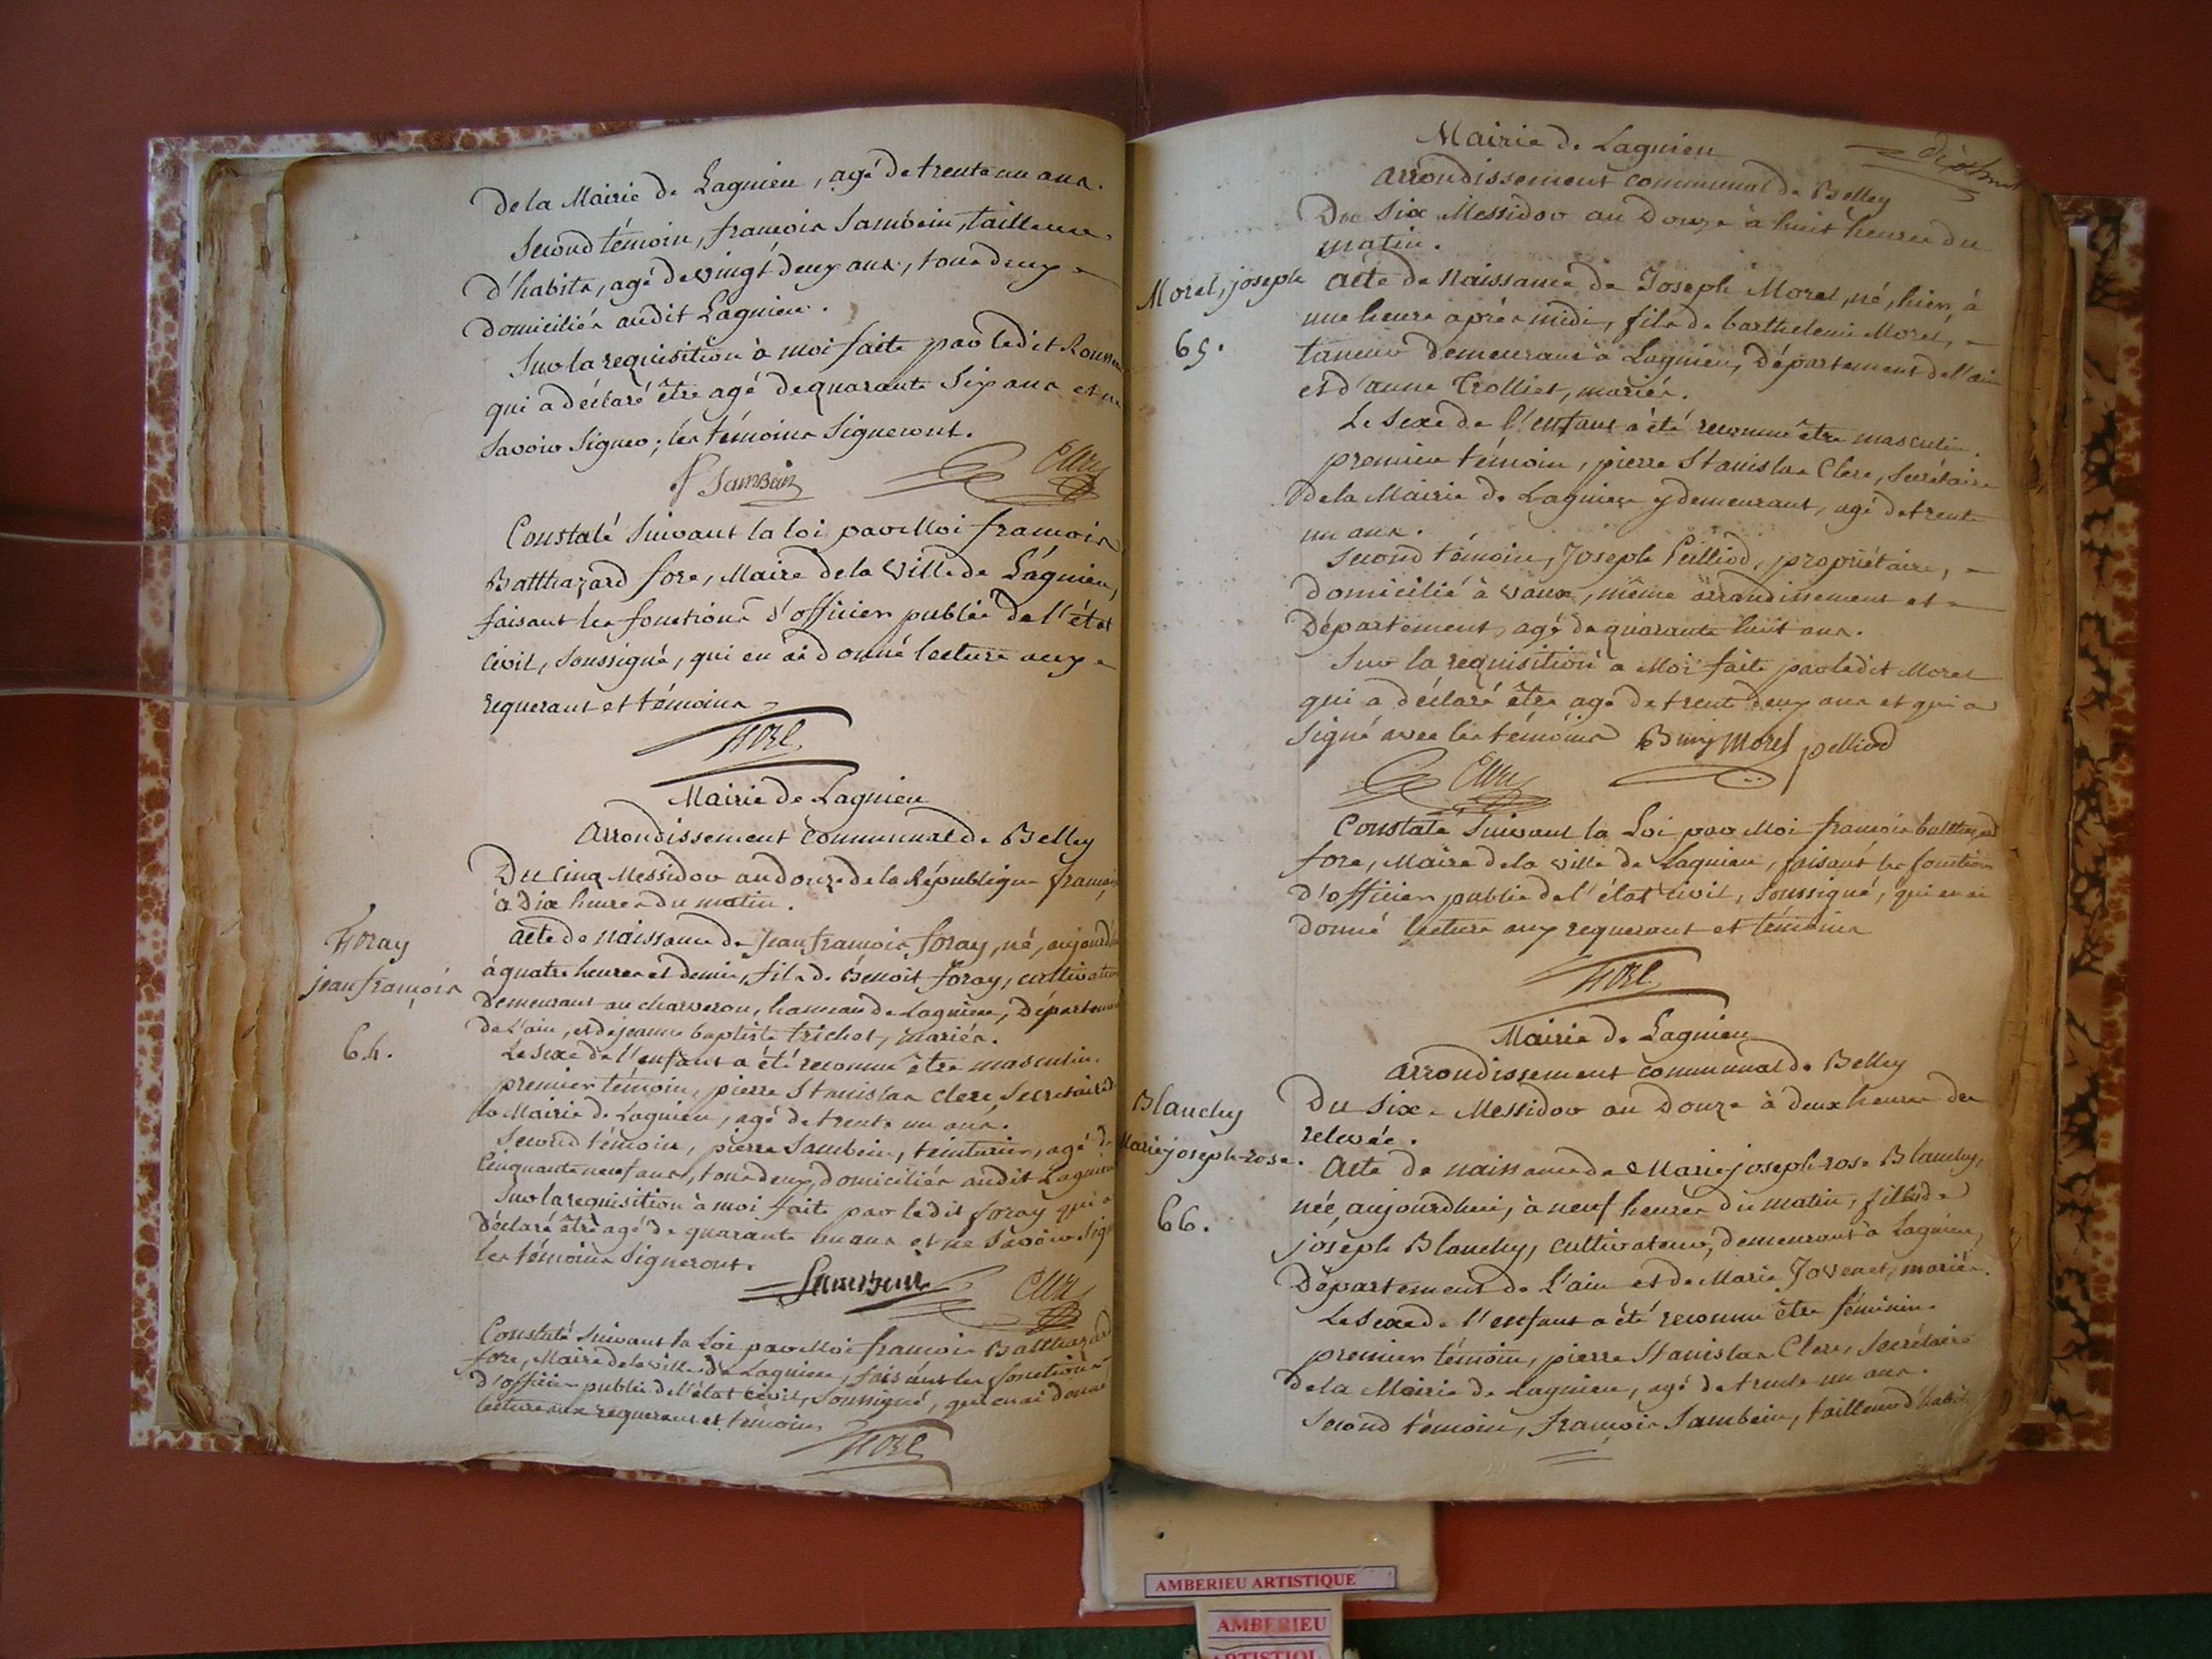 De la Mairie de Lagnieu, agé de trente un ans.
Second témoin, françois Sambein, tailleur
d'habits, agé de vingt deux ans, tous deux
domiciliés audit Lagnieu.
Sur la requisition à moi faite par ledit
qui a déclaré être agé de quarante six ans et ne
savoir signer; les témoins signeront.
f Sambein Clerc
Constaté suivant la loi par Moi françois
Balthazard fore, Maire de la Ville de Lagnieu,
faisant les fonctions d'officier public de l'état
civil, soussigné, qui en ai donné lecture aux
requerant et témoins
FORE
Mairie de Lagnieu
Arrondissement Communal de Belley
Du Cinq Messidor an douze de la République française
à dix heures du matin.
Foray
jean françois
64.
acte de naissance de Jean françois foray, né, aujourd'hui
à quatre heures et demie, fils de Benoit foray, cultivateur
Demeurant au charveron, hameau de Lagnieu, Département
de L'ain, et de jeanne baptiste trichet, mariés.
Le sexe de l'enfant a été reconnu être masculin.
premier témoin, pierre Stanislas Clerc, Secretaire de
la Mairie de Lagnieu, agé de trente un ans.
Second témoin, pierre Sambein, teinturier, agé de
Cinquante neuf ans, tous deux domiciliés audit Lagnieu
Sur la requisition à moi faite par ledit foray qui a
Déclaré être agé de quarante un ans et ne savoir signer
les témoins signeront.
Sambein Clerc
Constaté suivant la Loi par Moi françois Balthazard
fore, Maire de la ville de Lagnieu, faisant les fonctions
d'officier public de l'état civil, soussigné, qui en ai donné
lecture aux requerant et témoins
FORE
Mairie de Lagnieu
Arrondissement communal de Belley
Du Six Messidor an Douze à huit heures du
matin.
Morel, joseph
65.
acte de Naissance de Joseph Morel, né, hier, à
une heure après midi, fils de barthelemi Morel,
taneur demeurant à Lagnieu, Département de l'ain
et d'anne Trolliet, mariés.
Le Sexe de l'enfant a été reconnu être masculin.
premier témoin, pierre Stanislas Clerc, Secrétaire
de la Mairie de Lagnieu y demeurant, agé de trente
un ans.
Second témoin, Joseph Peilliod, propriétaire,
domicilié à vaux, même arrondissement et
Département, agé de quarante huit ans.
Sur la requisition a Moi faite par ledit Morel
qui a déclaré être agé de trente deux ans et qui a
Signé avec les témoins Bmi morel pelliod
Clerc
Constaté Suivant la Loi par Moi françois balthazard
fore, Maire de la ville de Lagnieu, faisant les fonctions
d'officier public de l'état civil, soussigné, qui en ai
donné lecture aux requerant et témoins
FORE
Mairie de Lagnieu
arrondissement communal de Belley
Du Six Messidor an Douze à deux heures de
relevée.
Blanchy
Marie joseph-rose.
66.
Acte de naissance de Marie joseph-rose Blanchy,
née, aujourdhui, à neuf heures du matin, fille de
joseph Blanchy, cultivateur, demeurant à Lagnieu,
Département de L'ain et de Marie Jovenet, mariés.
Le Sexe de l'enfant a été reconnu être féminin.
premier témoin, pierre Stanislas Clerc, secrétaire
de la Mairie de Lagnieu, agé de trente un ans.
Second témoin, françois Sambein, tailleur d'habits
AMBERIEU ARTISTIQUE
AMBERIEU